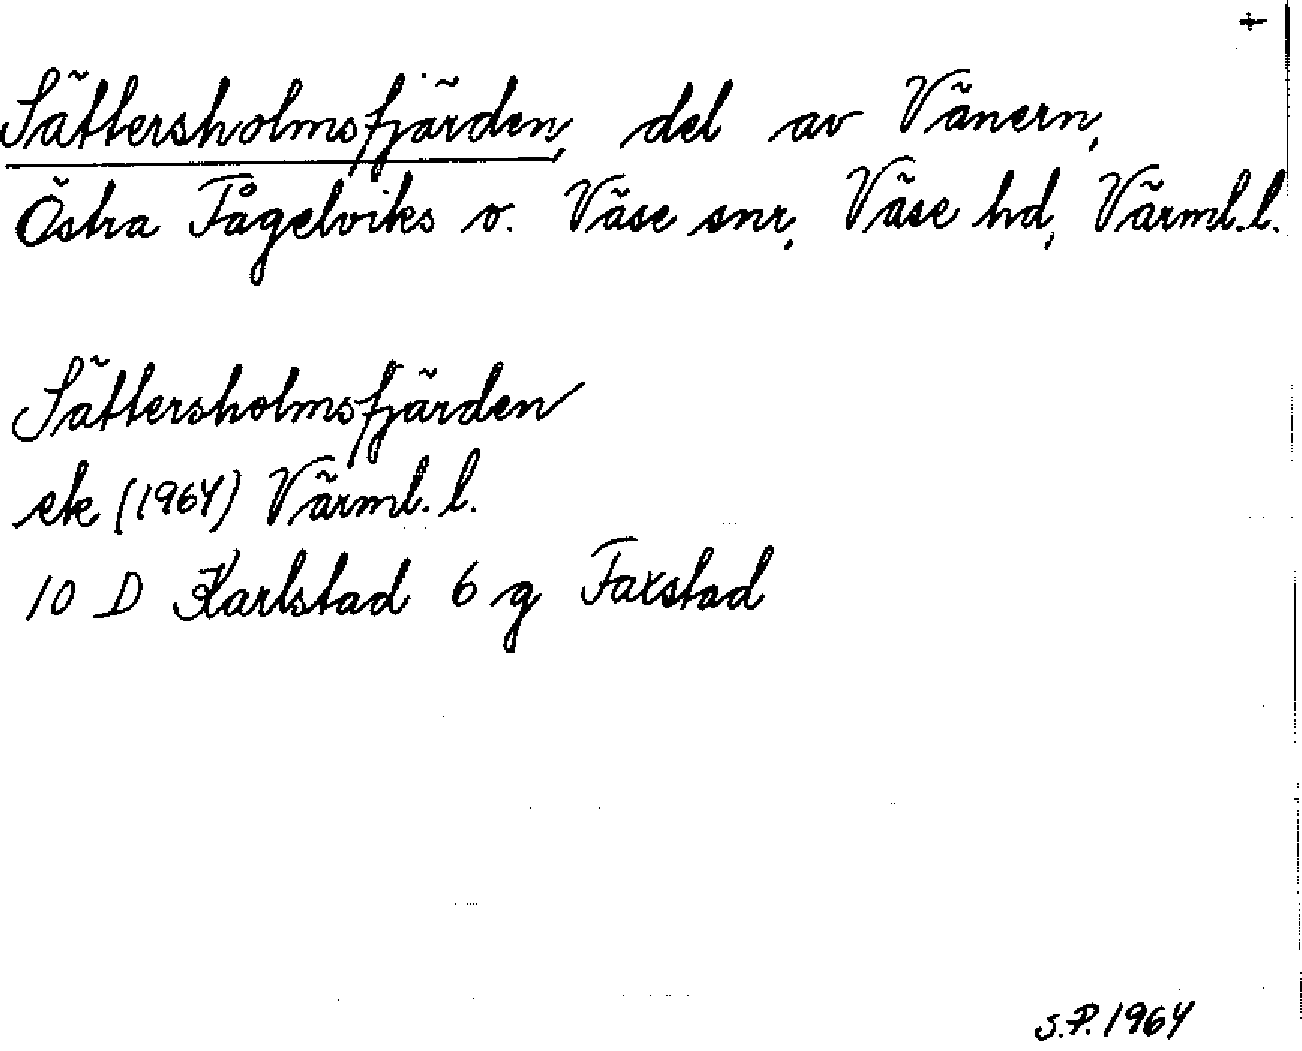 +
Sättersholmsfjärden, del av Vänern,
Östra Fågelviks o. Väse snr, Väse hd, Värml.l.
Sättersholmsfjärden
ek (1964) Värml. l.
10 D Karlstad 6 g Faxstad
S.P. 1964